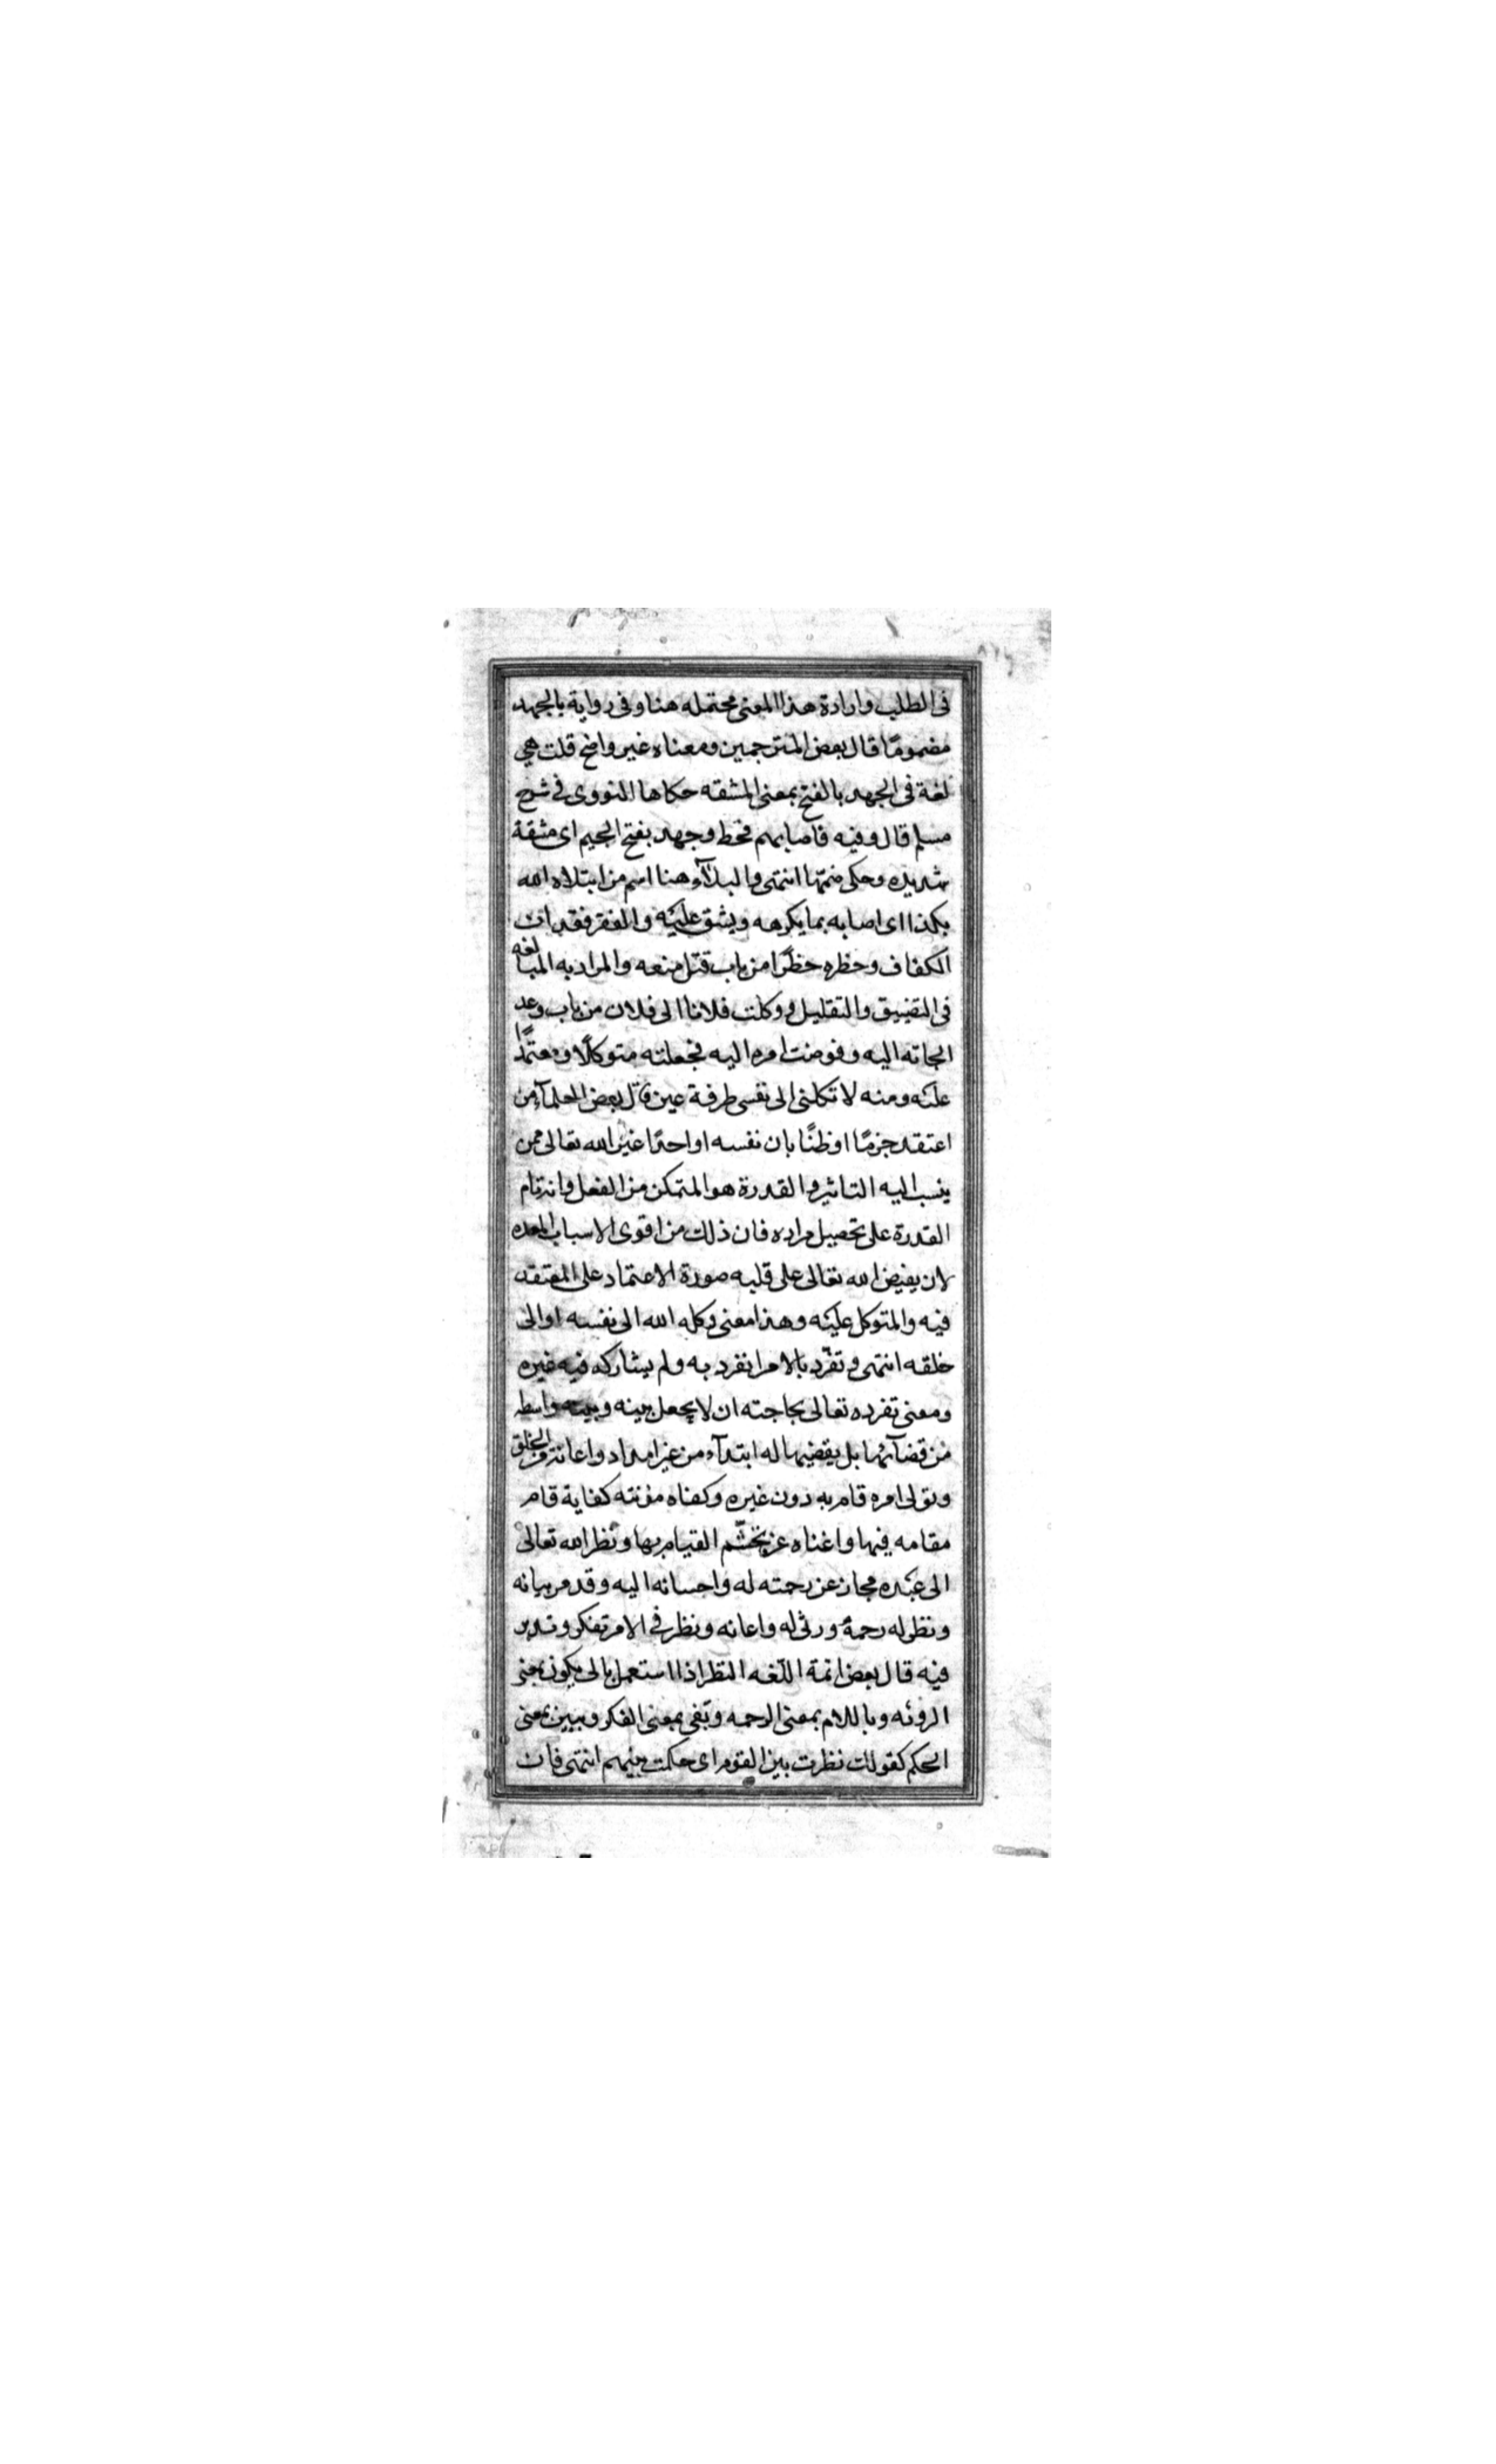 فى الطلب وارادة هذا المعنى محتمله هنا وفى رواية بالجهد
مضمومًا قال بعض المترجمين ومعناه غير واضح قلت هي
لغة فى الجهد بالفتح بمعنى المشقه حكاها النووى في شرح
مسلم قال وفيه فاصابهم قحط وجهد بفتح الجيم اى مشقة
شديده وحكى ضمتها انتهى والبلآء هنا اسم من ابتلاه الله
بكذا اى اصابه بما يكرهه ويشق عليه والفقر فقدان
الكفاف وحظره حظرًا من باب قتل منعه والمراد به المبالغه
فى التضييق والتقليل ووكلت فلانا الى فلان من باب وعد
الجاته اليه وفوضت امره اليه فجعلته متوكلًا ومعتمدًا
عليه ومنه لا تكلنى الى نفسى طرفة عين قال بعض العلمآء من
اعتقد جزمًا او ظنًا بان نفسه او احدًا غير الله تعالى ممن
ينسب اليه التاثير والقدرة هو المتمكن من الفعل وانه تام
القدرة على تحصيل مراده فان ذلك من اقوى الاسباب المعده
لان يفيض الله تعالى على قلبه صورة الاعتماد على المعتقد
فيه والمتوكل عليه وهذا معنى وكله الله الى نفسه او الى
خلقه انتهى وتفرّد بالامر انفرد به ولم يشاركه فيه غيره
ومعنى تفرده تعالى بحاجته ان لا يجعل بينه وبينه واسطه
من قضآئها بل يقضيها له ابتدآء من غير امداد واعانة من الخلق
وتولى امره قام به دون غيره وكفاه مؤنته كفاية قام
مقامه فيها واغناه عن تجشّم القيام بها ونظر الله تعالى
الى عبده مجاز عن رحمته له واحسانه اليه وقد مر بيانه
ونظر له رحمهُ ورثى له واعانه ونظر في الامر تفكر وتدبر
فيه قال بعض ائمة اللّغه النظر اذا استعمل بالى يكون بمعنى
الروئه وباللام بمعنى الرحمه وبفى بمعنى الفكر وببين بمعنى
الحكم كقولك نظرت بين القوم اى حكمت بينهم انتهى فان